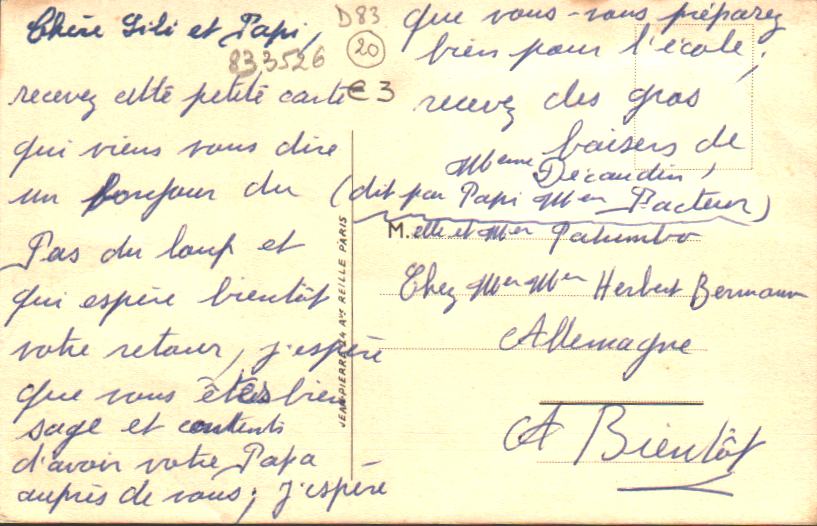 Chère Lili et Papi,
recevez cette petite carte
qui viens vous dire
un bonjour du
Pas du loup et
qui espère bientôt
votre retour, j'espère
que vous êtes bien
sage et contents
d'avoir votre Papa
auprès de vous; j'espère
D83
20
833526
€3
que vous-vous préparez
bien pour l'école;
recevez des gros
baisers de
Mème Décaudin,
(dit par Papi Mer Facteur)
M.elle et Mer Palumbo
Chez Mer Mer Herbert Bermann
Allemagne
A Bientôt
JEAN-PIERRE 24 Ave REILLE PARIS